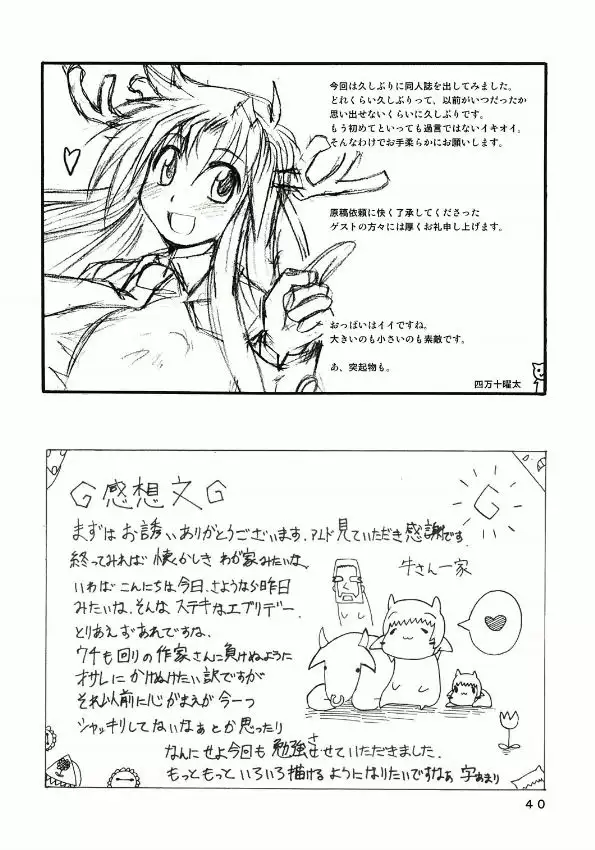 今回は久しぶりに同人誌を出してみました。
どれくらい久しぶりって、以前がいつだったか
思い出せないくらいに久しぶりです。
もう初めてといっても過言ではないイキオイ。
そんなわけでお手柔らかにお願いします。
原稿依頼に快く了承してくださった
ゲストの方々には厚くお礼申し上げます。
おっぱいはイイですね。
大きいのも小さいのも素敵です。
あ、突起物も。
四万十曜太
G感想文G
まずはお誘いありがとうございます、アレド見ていただき感謝です
終ってみれば 懐かしき わが家みたいな、
いわば こんにちは今日、さようなら昨日
みたいな、そんな ステキなエブリデー、
とりあえずあれですね、
ウチも回りの作家さんに負けぬように
オサレに かけぬけたい訳ですが
それ以前に心がまえが今一つ
シャッキリしてないなぁとか思ったり
なんにせよ今回も勉強させせていただきました、
さ
もっともっと いろいろ描ける ようになりたいですなぁ 字あまり
牛さん一家
G
40